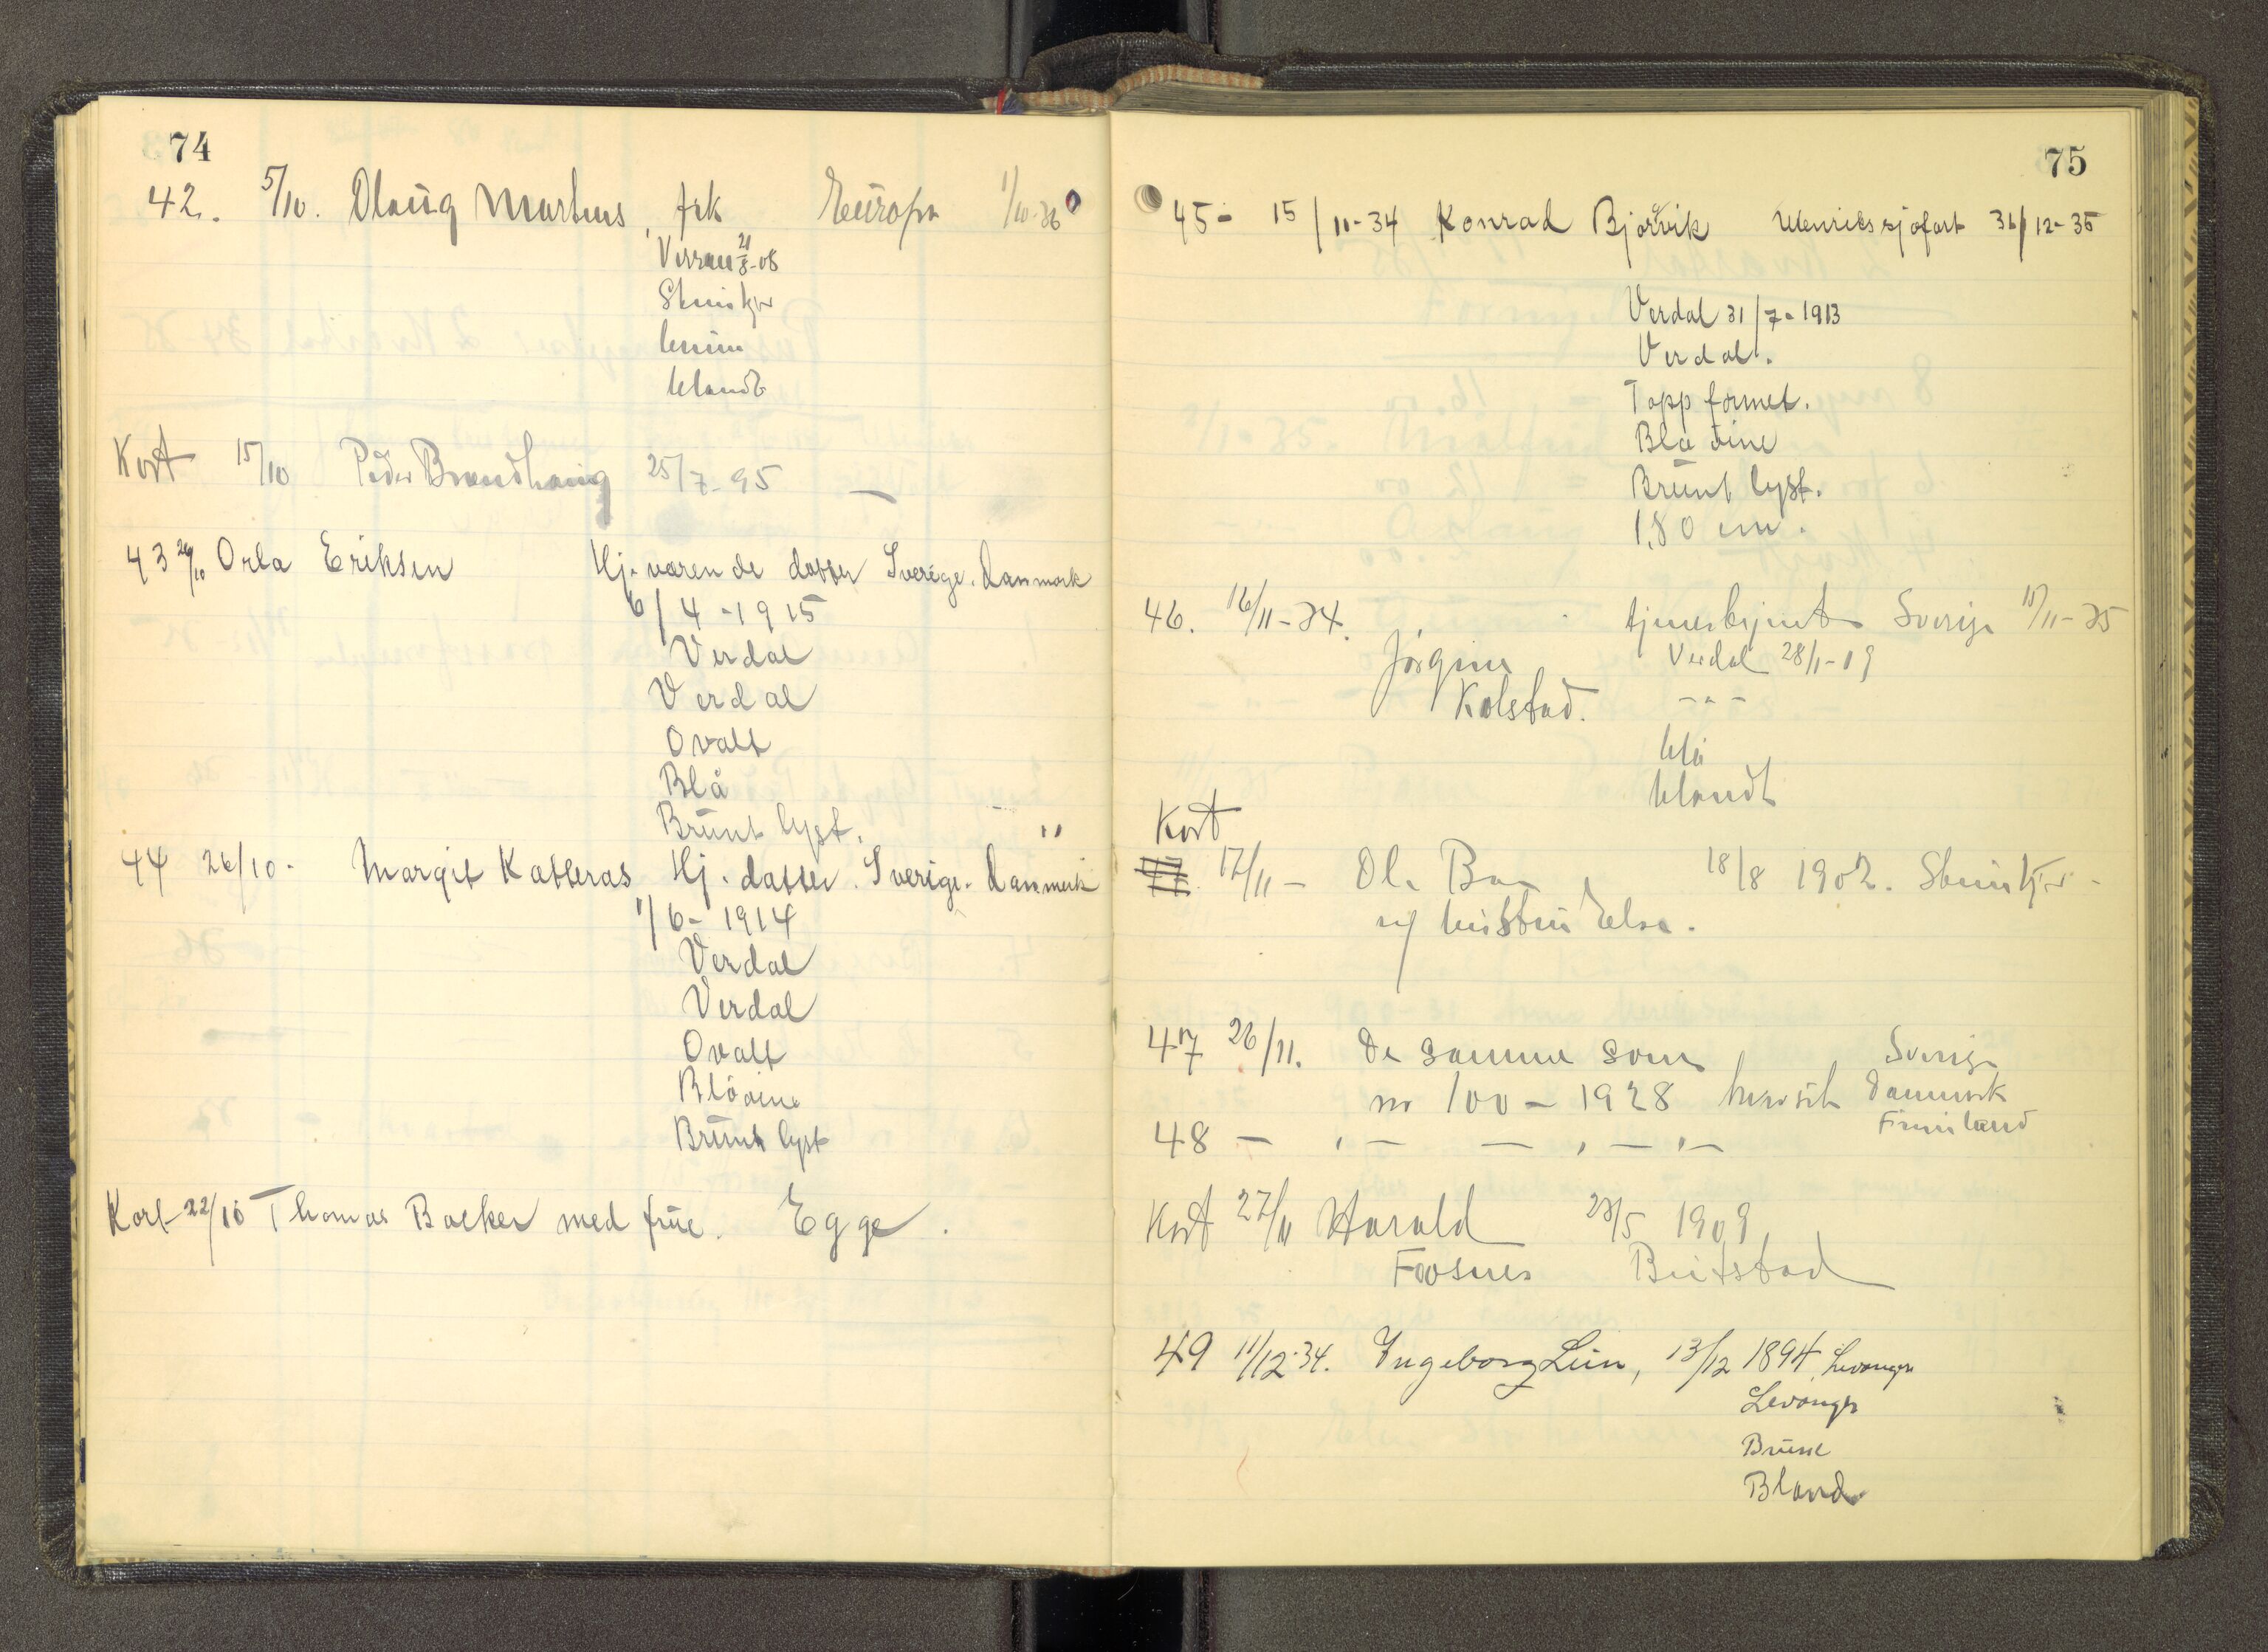 74
42. 5/10. Olaug Martens, frk Europa 1/10-36
Verran 21/8-08
Steinkjer
blond
Kort 15/10 Peder Brandhaug 25/7-95 —
43 26/10 Orla Eriksen Hj. værende datter Sverige. Danmark
6/4-1915
Verdal
Verdal
Ovalt
Blå
Brunt lyst.
44 26/10- Margit Katteras Hj. datter. Sverige. Danmark "
1/6-1914
Verdal
Verdal
Ovalt
Blå øine
Brunt lyst
Kort 22/10 Thomas Backer med frue. Egge.
75
45- 15/11-34 Konrad Bjørvik Utenriks sjøfart 31/12-35
Verdal 31/7-1913
Verdal.
Topp formet.
Blå øine
Brunt lyst.
1,80 cm.
46. 16/11-34. tjenestejente Sverige 15/11-35
Jørgine Verdal 28/1-19
Kolstad. -"-
blå
blondt
Kort
17/11- Ole Boe 18/8 1902. Steinkjer-
m/ hustru Else.
47 26/11. De samme som Sverige
no 100-1928 Danmark
Finnland
48 — " — — " — " —
Kort 27/11 Harald 23/5 1909
Fosnes Beitstad
49 11/12-34. Ingeborg Lein, 13/12 1894, Levanger
Levanger
Brune
Blond